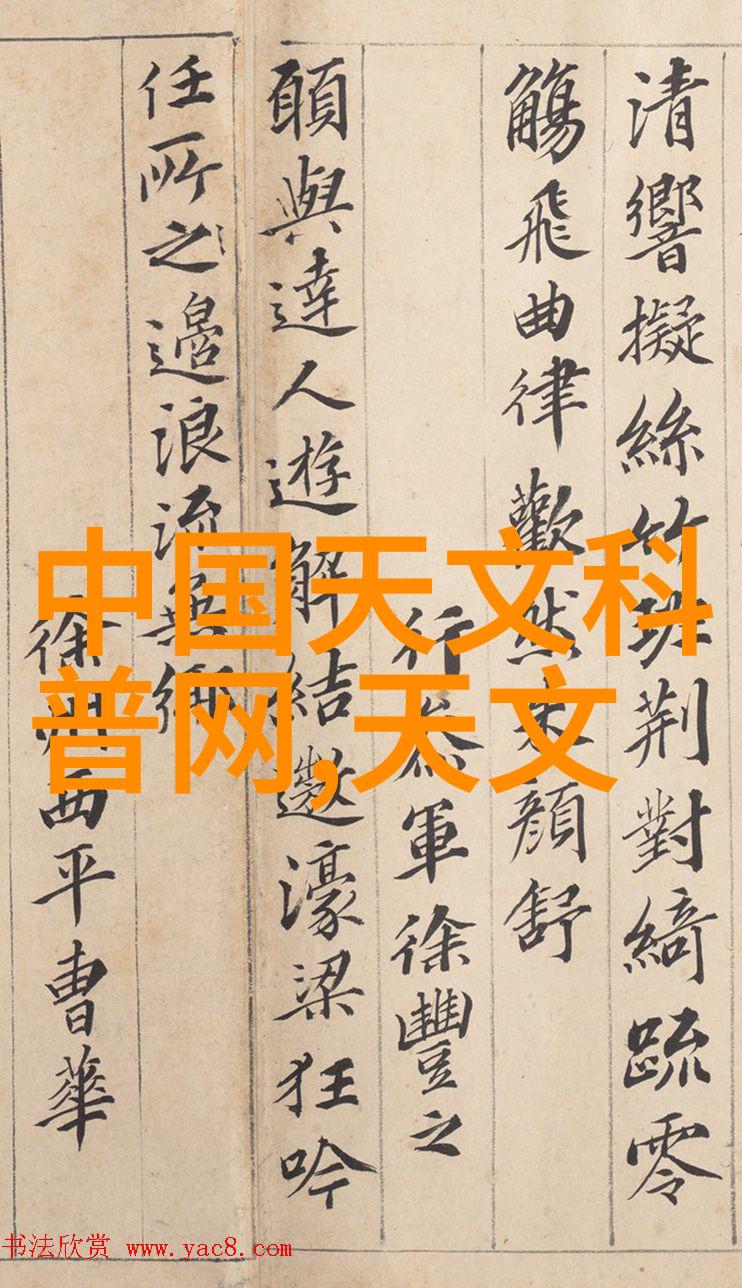 清響擬絲竹班荊對綺疏零
觴飛曲律歡然朱顏舒
行參軍徐豐之
願與達人遊解結遨濠梁狂吟
任所之邊浪流無鄉
徐州西平曹華
中国天文科
普网,天文
书法欣赏 www.yac8.com